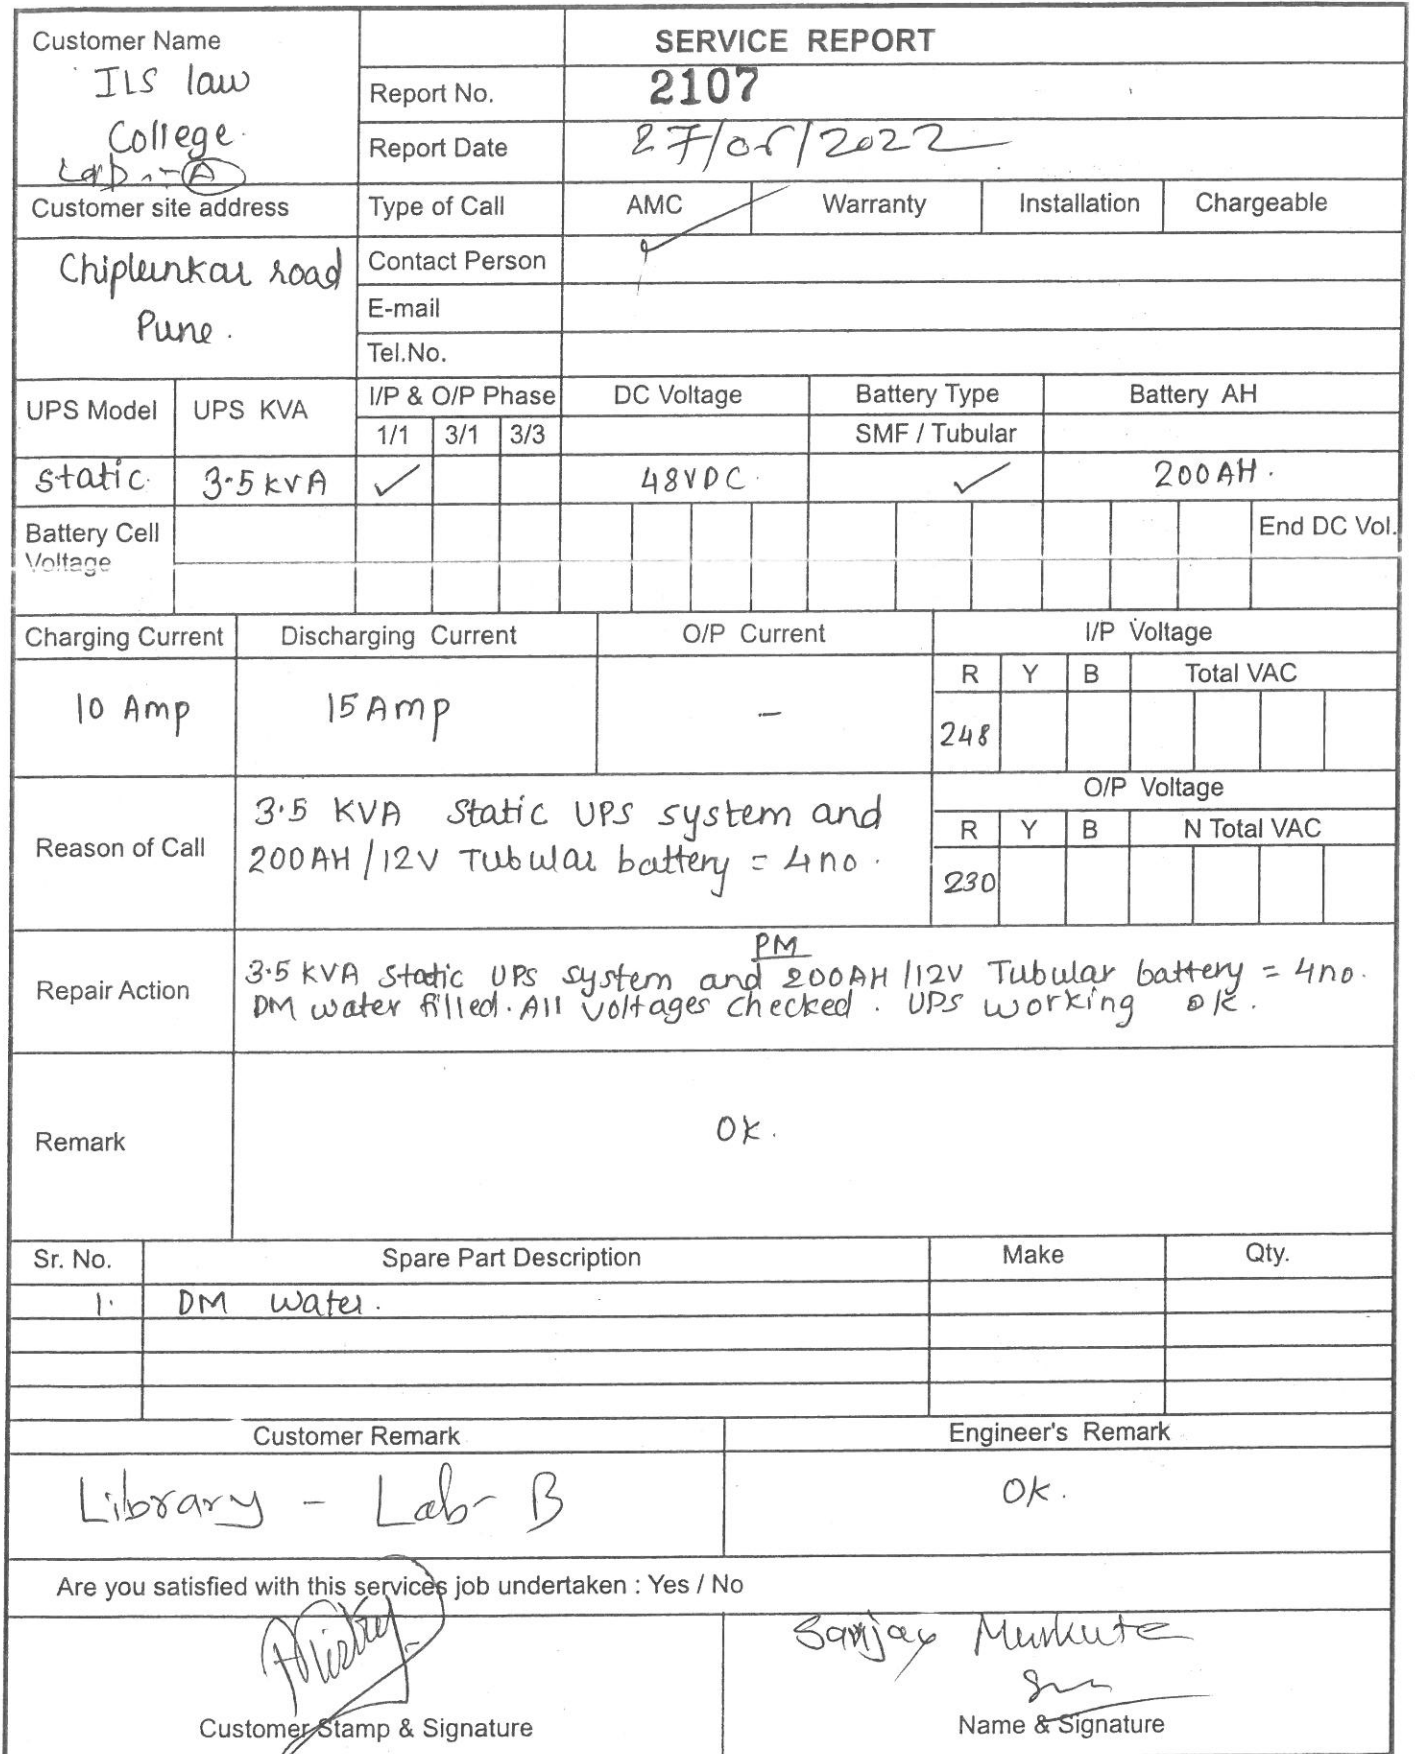 Customer Name
ILS law
College.
Lab :- A
SERVICE REPORT
Report No. 2107
Report Date 27/05/2022
Customer site address
Chiplunkar road
Pune.
Type of Call AMC Warranty Installation Chargeable
Contact Person
E-mail
Tel.No.
UPS Model UPS KVA I/P & O/P Phase DC Voltage Battery Type Battery AH
1/1 3/1 3/3 SMF / Tubular
static 3.5 KVA ✓ 48VDC ✓ 200AH.
Battery Cell
Voltage
End DC Vol.
Charging Current Discharging Current O/P Current I/P Voltage
R Y B Total VAC
10 Amp 15 Amp - 248
Reason of Call
3.5 KVA Static UPS system and
200AH/12V Tubular battery = 4no.
O/P Voltage
R Y B N Total VAC
230
Repair Action
PM
3.5 KVA Static UPS system and 200AH/12V Tubular battery = 4no.
DM water filled. All voltages checked. UPS working ok.
Remark
Ok.
Sr. No. Spare Part Description Make Qty.
1. DM Water.
Customer Remark Engineer's Remark
Library - Lab- B Ok.
Are you satisfied with this services job undertaken : Yes / No
Sanjay Murkute
Customer Stamp & Signature Name & Signature